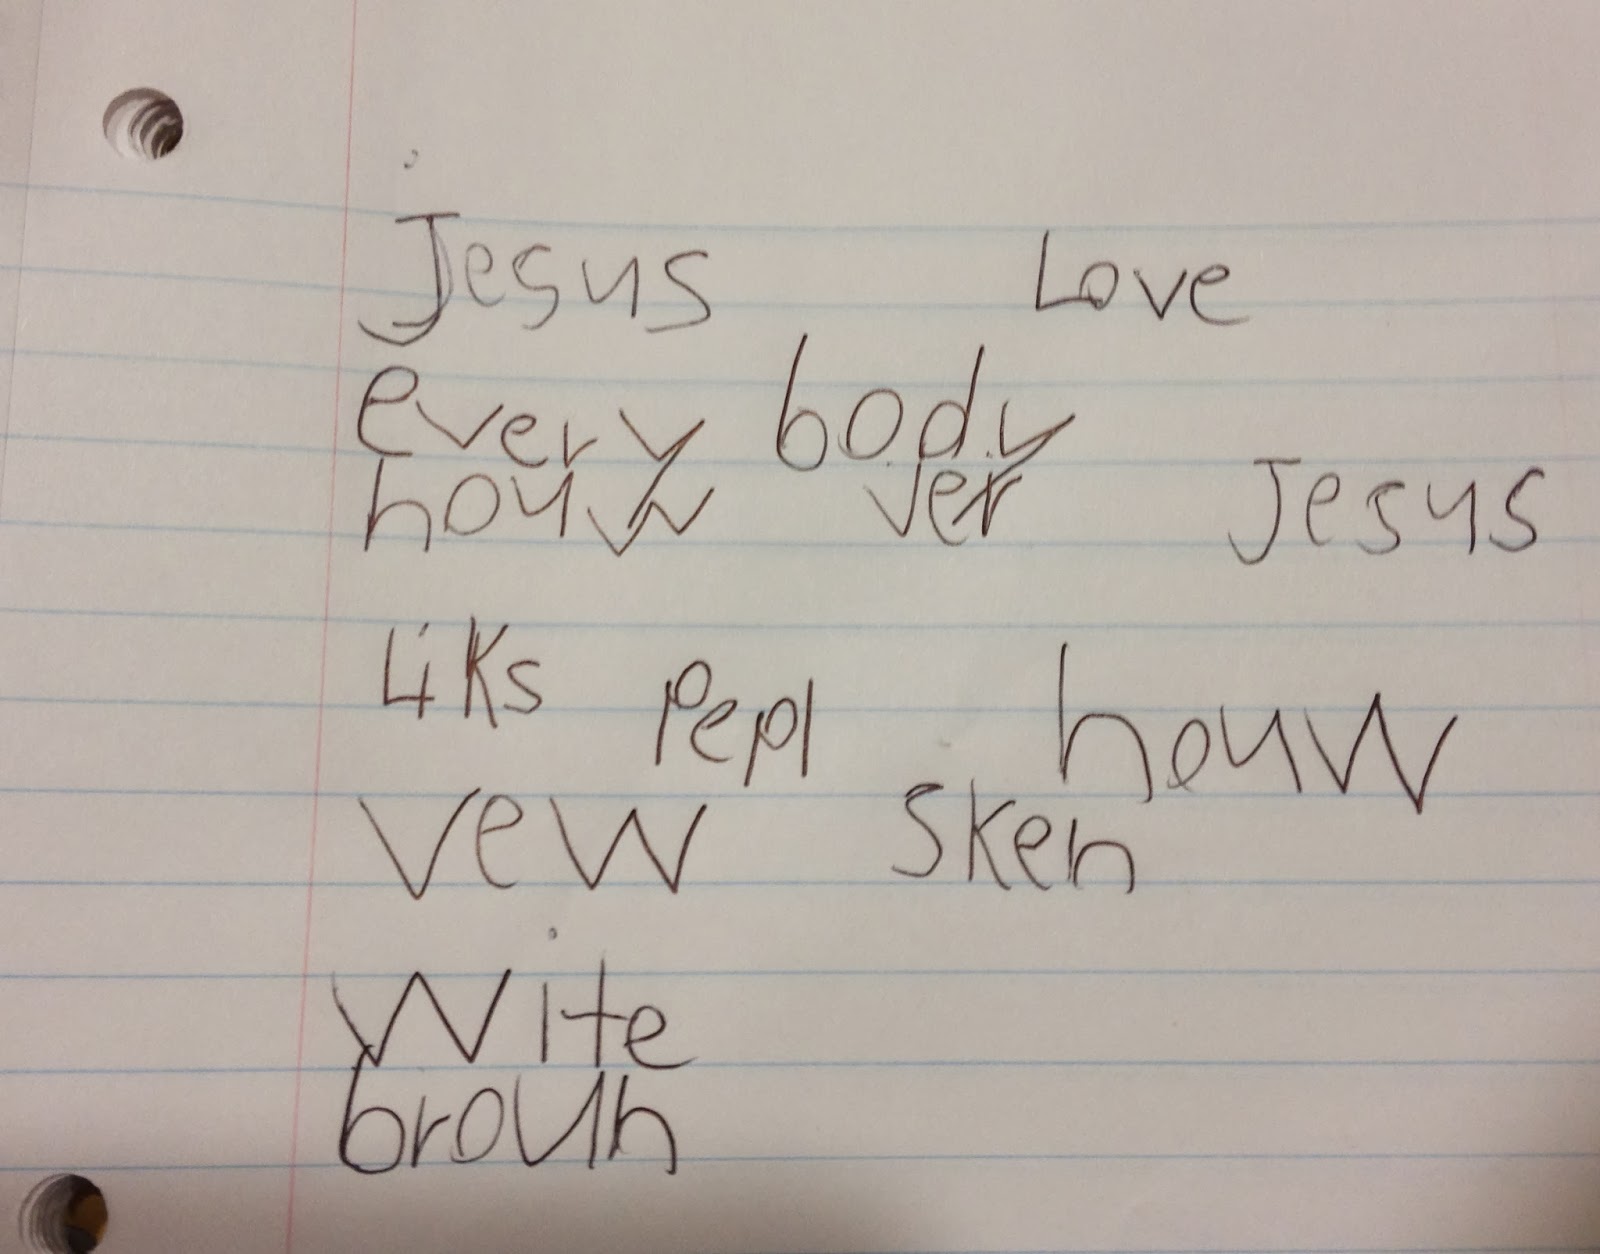 Jesus Love
every body
houw ver Jesus
Liks Pepl houw
vew Sken
Wite
broun